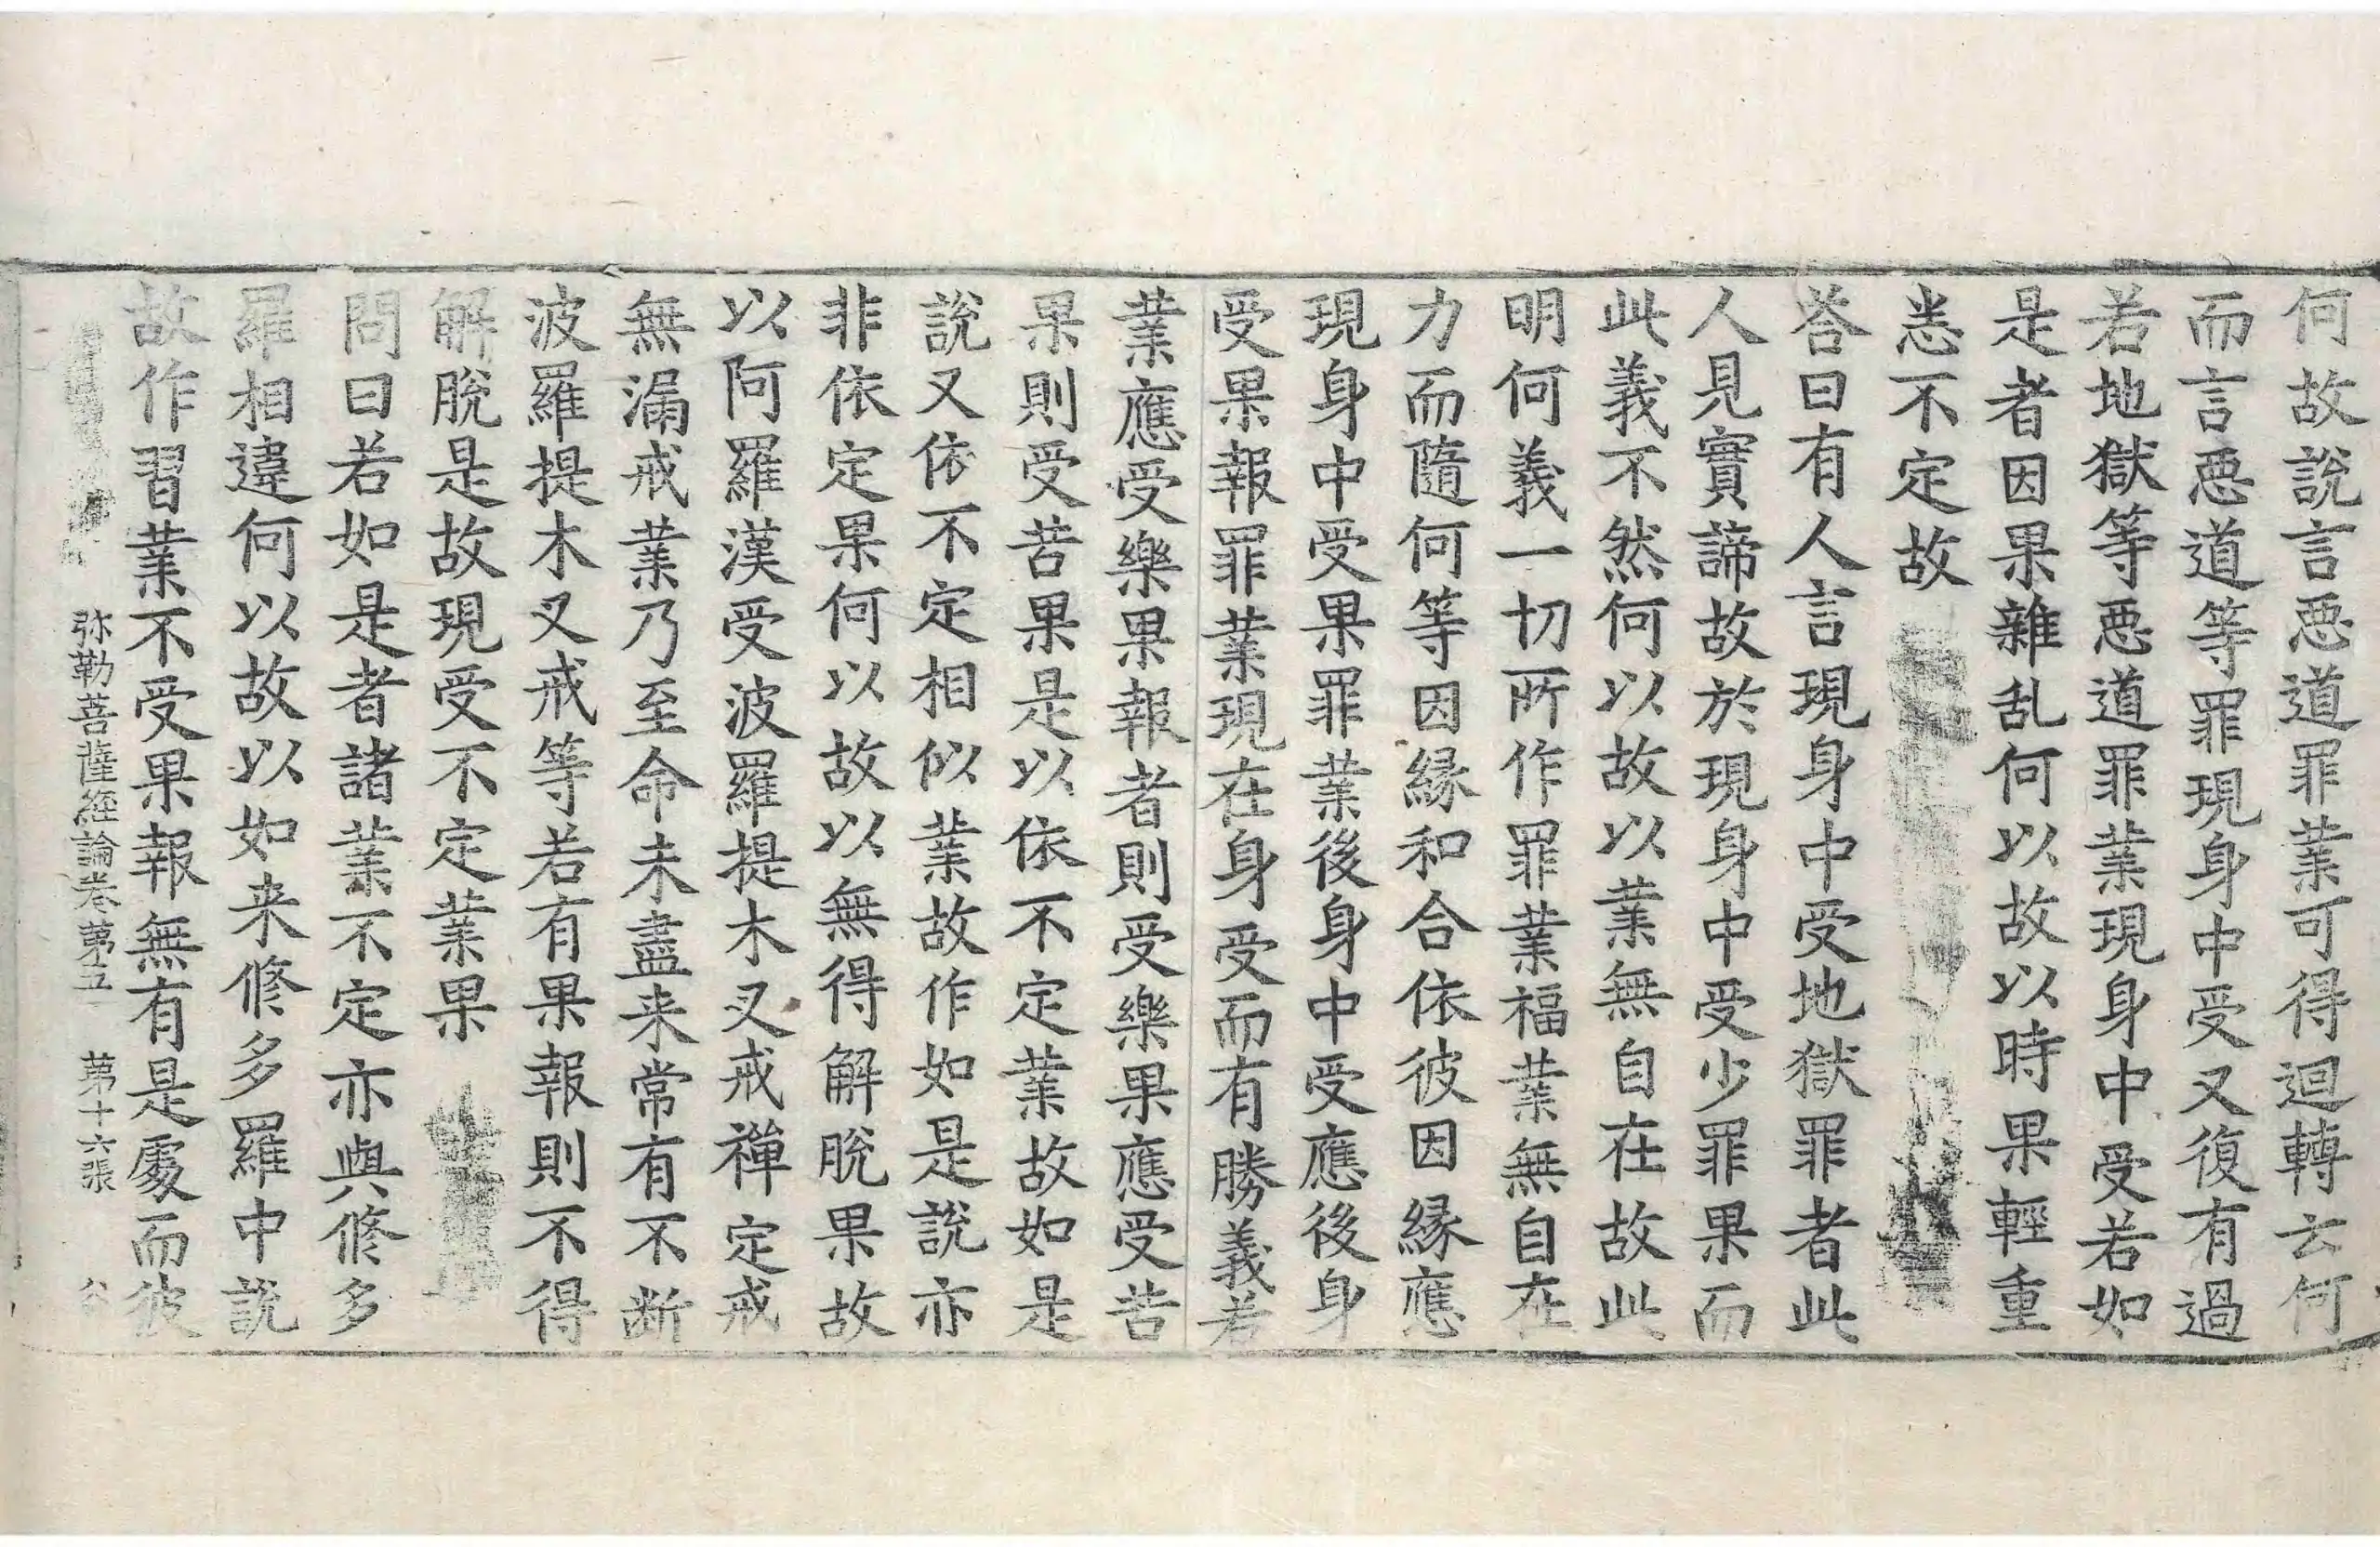 何故說言惡道罪業可得迴轉云何
而言惡道等罪現身中受又復有過
若地獄等惡道罪業現身中受若如
是者因果雜乱何以故以時果輕重
悉不定故
荅曰有人言現身中受地獄罪者此
人見實諦故於現身中受少罪果而
此義不然何以故以業無自在故此
明何義一切所作罪業福業無自在
力而隨何等因縁和合依彼因縁應
現身中受果罪業後身中受應後身
受果報罪業現在身受而有勝義若
業應受樂果報者則受樂果應受苦
果則受苦果是以依不定業故如是
說又依不定相似業故作如是說亦
非依定果何以故以無得解脫果故
以阿羅漢受波羅提木叉戒禪定戒
無漏戒業乃至命未盡来常有不断
波羅提木叉戒等若有果報則不得
解脫是故現受不定業果
問曰若如是者諸業不定亦與修多
羅相違何以故以如来修多羅中說
故作習業不受果報無有是處而彼
弥勒菩薩經論卷第五 第十六張